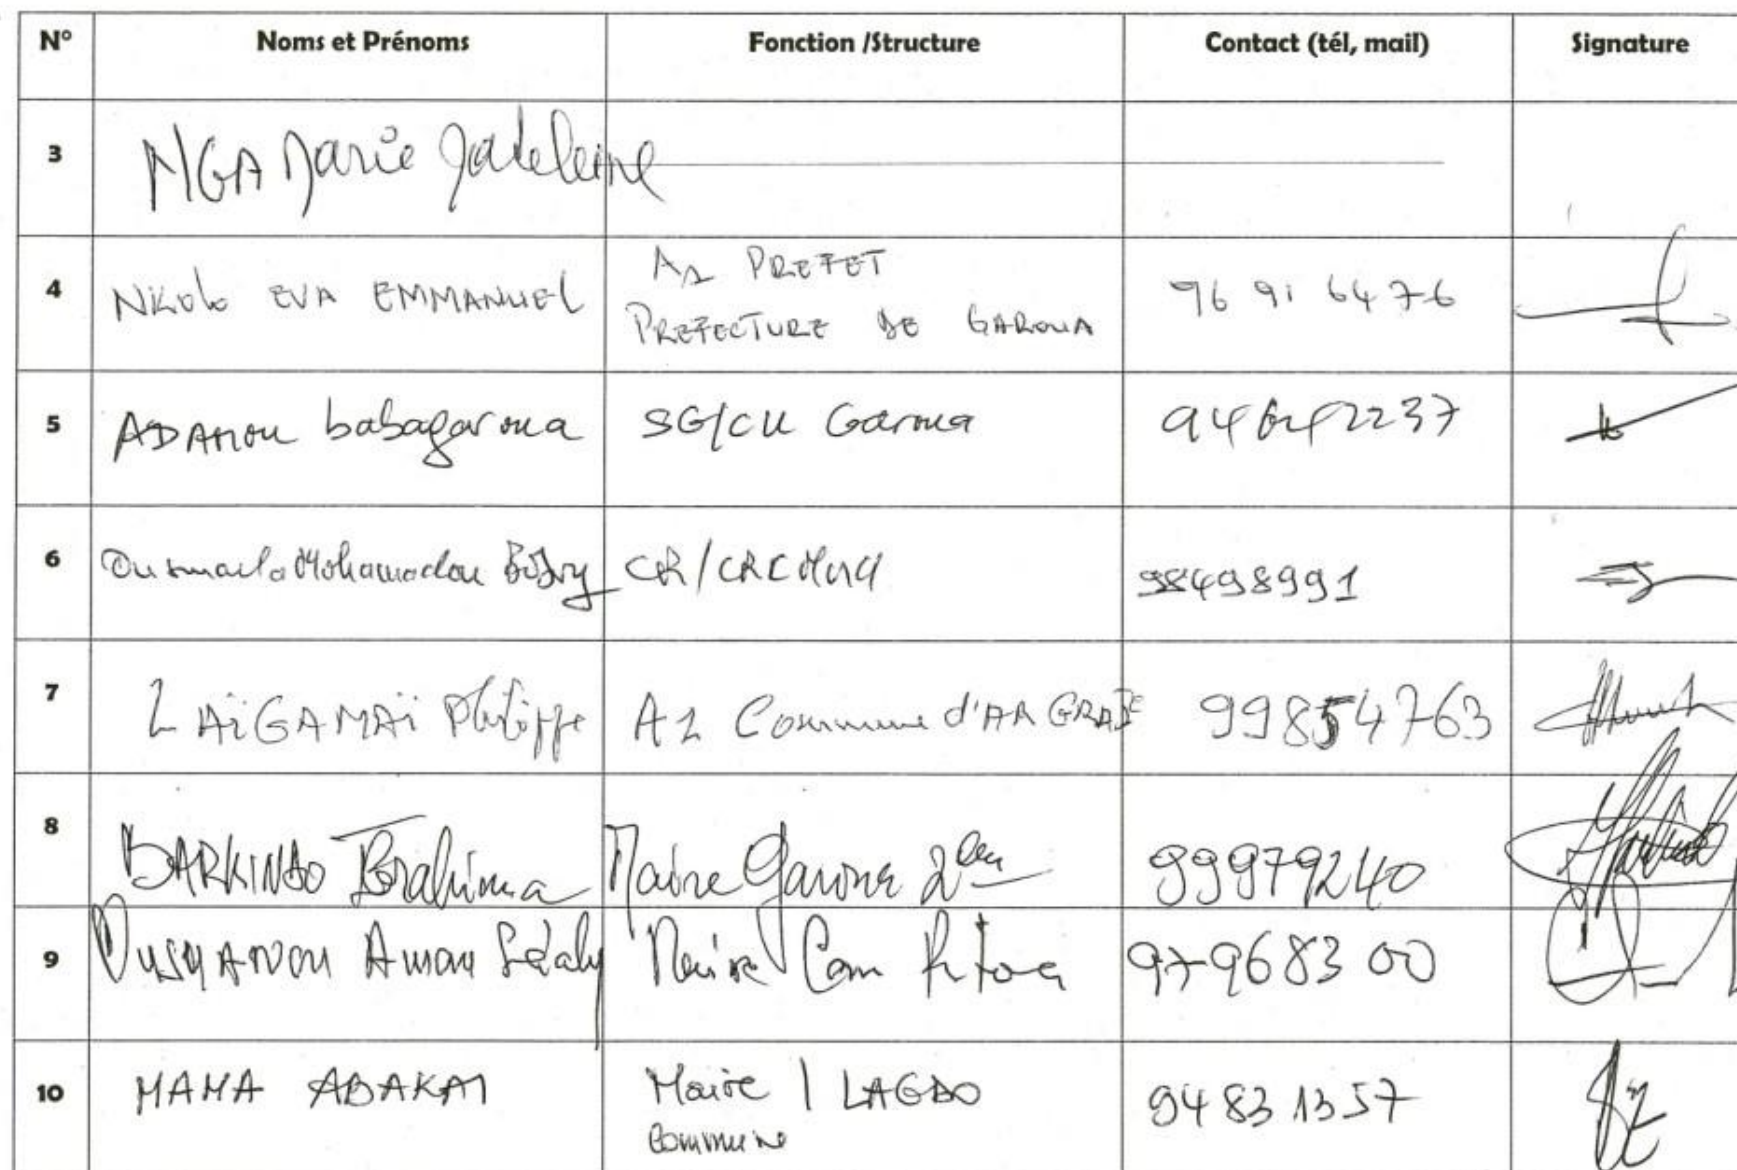 N° Noms et Prénoms Fonction /Structure Contact (tél, mail) Signature
3 NGA Marie Madeleine
4 Nkolo EVA EMMANUEL A1 PREFET
PREFECTURE DE GAROUA 96 91 64 76
5 ADAMOU babagaroua SG/CU Garoua 94642237
6 Ousmaila Mohamadou CR/ 98498991
7 ZAïGAMAï Philippe A1 Commune d' 99854763
8 BARKINDO Ibrahima Maire Garoua 2ème 99979240
9 Amaou Maire Com Pitoa 97968300
10 MAMA ABAKAI Maire / LAGDO 94 83 13 57
Commune